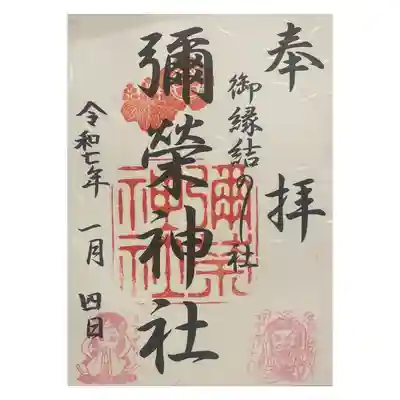 奉拝
御縁結の社
彌榮神社
令和七年 一月 四日
彌榮
神社